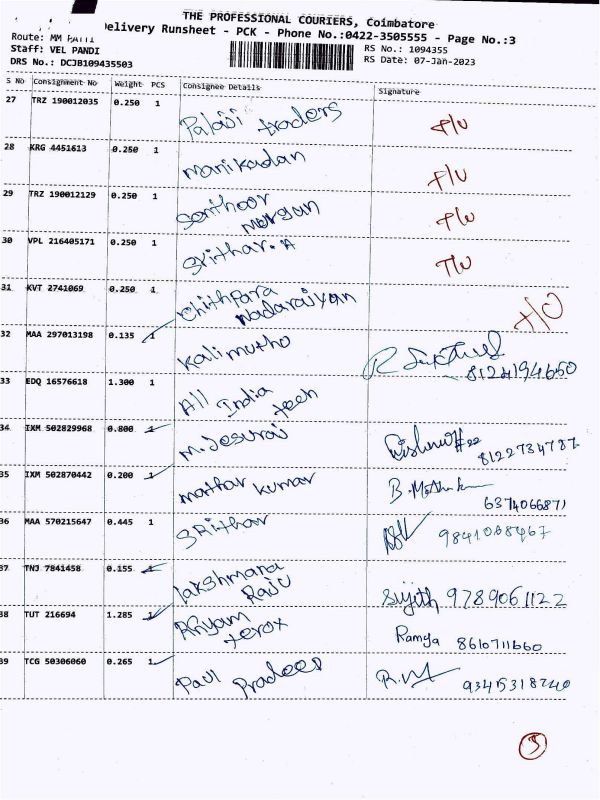 THE PROFESSIONAL COURIERS, Coimbatore
Delivery Runsheet - PCK - Phone No.:0422-3505555 - Page No.:3
Route: MM
Staff: VEL PANDI
DRS No.: DCJB109435503
RS No.: 1094355
RS Date: 07-Jan-2023
S No Consignment No Weight PCS Consignee Details Signature
27 TRZ 190012035 0.250 1 Palaji traders T/U
28 KRG 4451613 0.250 1 Manikadan T/U
29 TRZ 190012129 0.250 1 Senthoor Morgan T/U
30 VPL 216405171 0.250 1 Srithar. A T/U
31 KVT 2741069 0.250 1 Chithpara Nadaraiyan T/U
32 MAA 297013198 0.135 1 Kalimutho
33 EDQ 16576618 1.300 1 All India tech
34 IXM 502829968 0.800 1 M. Jesuraj 8122734787
35 IXM 502870442 0.200 1 Marthar Kumar 6374066871
36 MAA 570215647 0.445 1 SRithar 9841068467
37 TNJ 7841458 0.155 1 Lakshmana Raju Sujith 9789061122
38 TUT 216694 1.285 1 Ariyam terox Ramya 8610711660
39 TCG 50306060 0.265 1 Paul Pradeep 9345318740
3